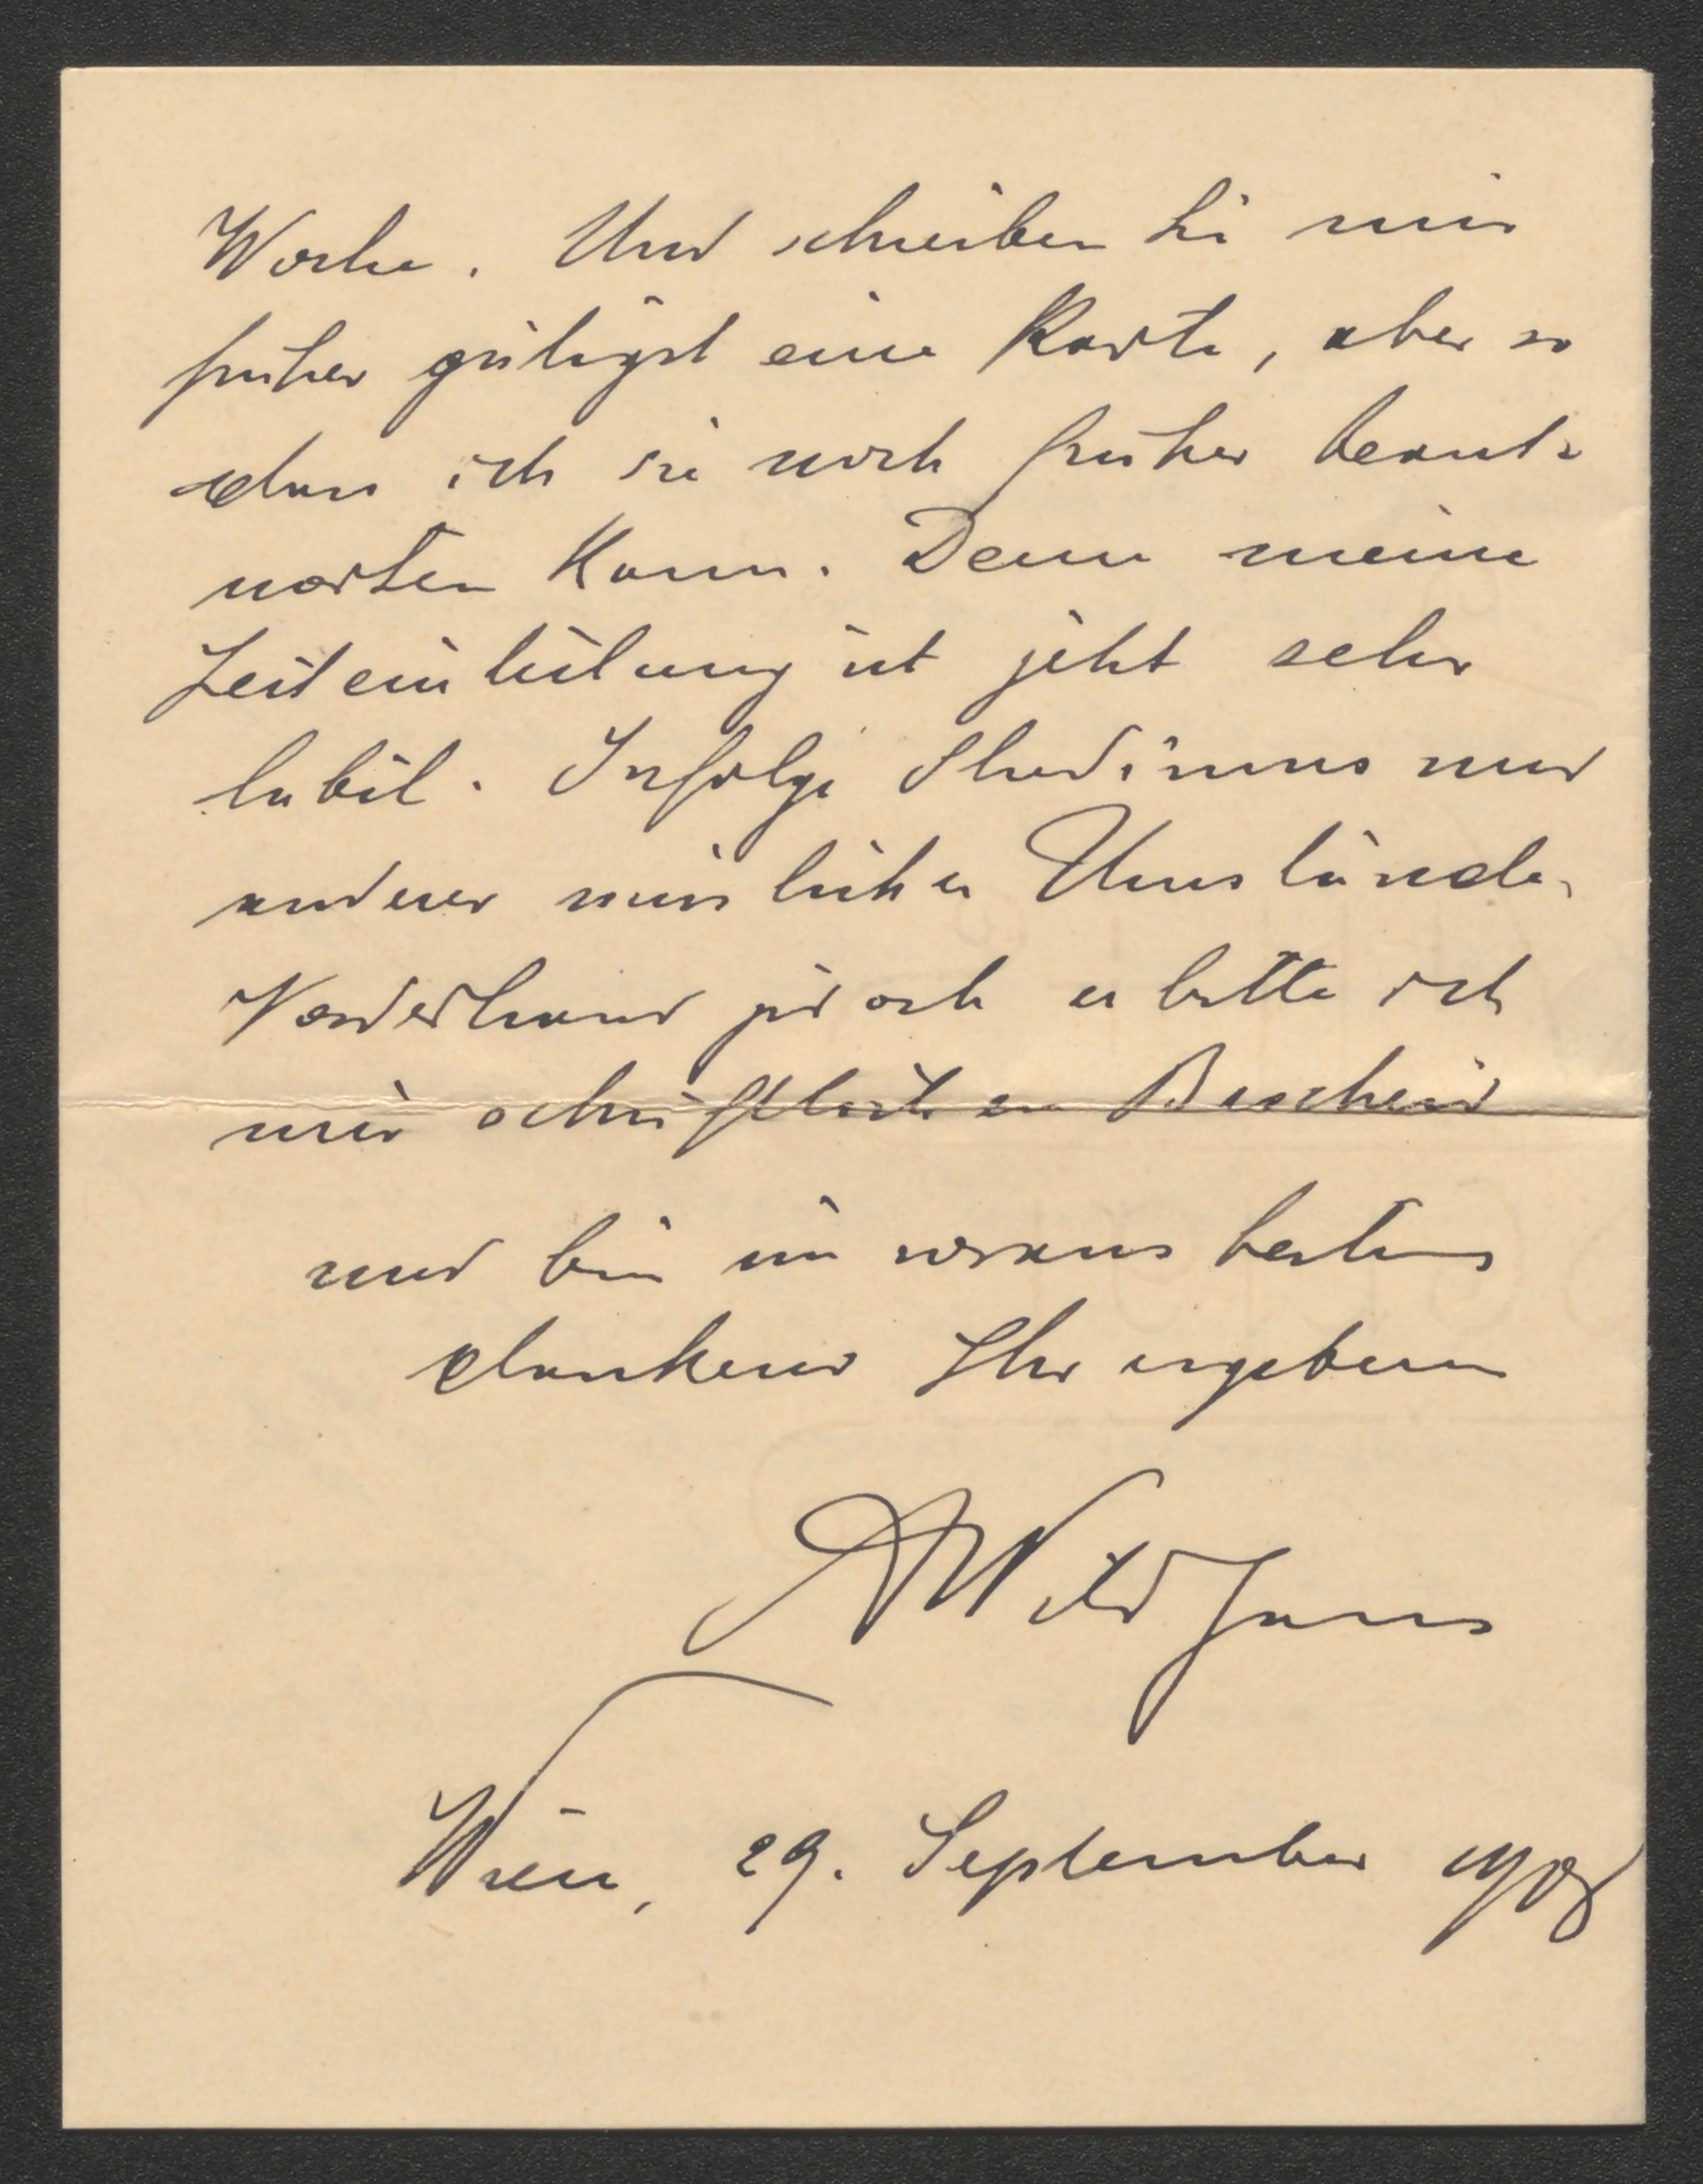 Woche. Und schreiben Sie mir
früher gütigst eine Karte, aber so
dass ich sie noch früher beant-
worten kann. Denn meine
Zeiteinteilung ist jetzt sehr
labil. Infolge Studiums und
anderer misslicher Umstände.
Vorderhand jedoch erbitte ich
mir schriftlichen Bescheid
und bin im voraus bestens
dankend Ihr ergebener
AWildgans
Wien, 29. September 1908